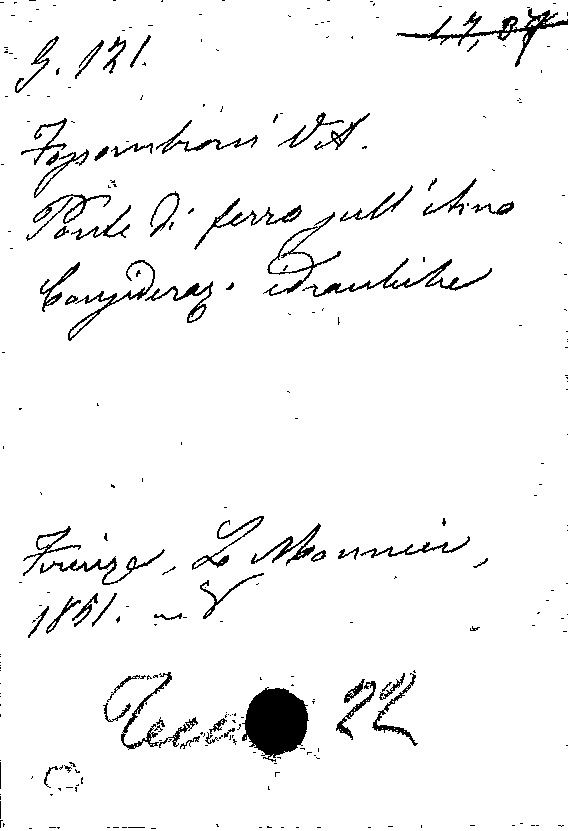 G. 121.
Fossombroni V.
Ponte di ferro sull'Arno
Consideraz. idrauliche
Firenze, Le Monnier,
1851. in 8
22